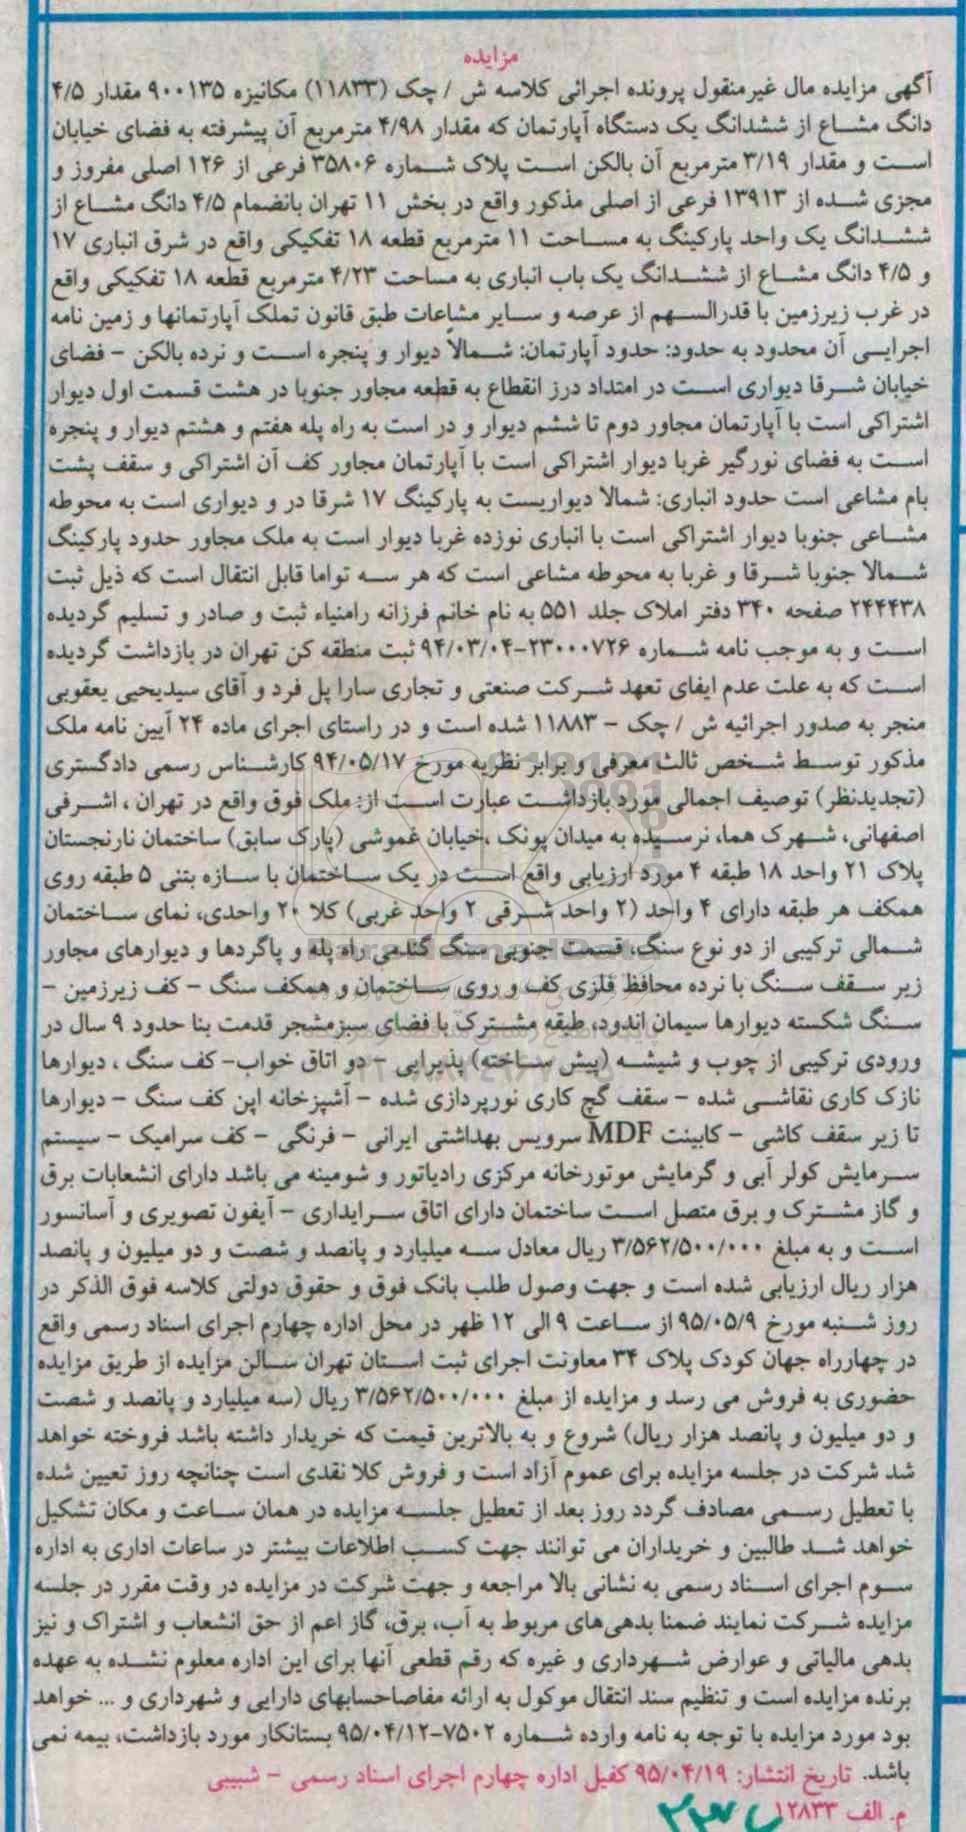 مزایده
آگهی مزایده مال غیرمنقول پرونده اجرائی کلاسه ش / چک (۱۱۸۳۳) مکانیزه ۹۰۰۱۳۵ مقدار ۴/۵
دانگ مشاع از ششدانگ یک دستگاه آپارتمان که مقدار ۴/۹۸ مترمربع آن پیشرفته به فضای خیابان
است و مقدار ۳/۱۹ مترمربع آن بالکن است پلاک شماره ۳۵۸۰۶ فرعی از ۱۲۶ اصلی مفروز و
مجزی شده از ۱۳۹۱۳ فرعی از اصلی مذکور واقع در بخش ۱۱ تهران بانضمام ۴/۵ دانگ مشاع از
ششدانگ یک واحد پارکینگ به مساحت ۱۱ مترمربع قطعه ۱۸ تفکیکی واقع در شرق انباری ۱۷
و ۴/۵ دانگ مشاع از ششدانگ یک باب انباری به مساحت ۴/۲۳ مترمربع قطعه ۱۸ تفکیکی واقع
در غرب زیرزمین با قدرالسهم از عرصه و سایر مشاعات طبق قانون تملک آپارتمانها و زمین نامه
اجرایی آن محدود به حدود: حدود آپارتمان: شمالاً دیوار و پنجره است و نرده بالکن - فضای
خیابان شرقا دیواری است در امتداد درز انقطاع به قطعه مجاور جنوبا در هشت قسمت اول دیوار
اشتراکی است با آپارتمان مجاور دوم تا ششم دیوار و در است به راه پله هفتم و هشتم دیوار و پنجره
است به فضای نورگیر غربا دیوار اشتراکی است با آپارتمان مجاور کف آن اشتراکی و سقف پشت
بام مشاعی است حدود انباری: شمالا دیواریست به پارکینگ ۱۷ شرقا در و دیواری است به محوطه
مشاعی جنوبا دیوار اشتراکی است با انباری نوزده غربا دیوار است به ملک مجاور حدود پارکینگ
شمالا جنوبا شرقا و غربا به محوطه مشاعی است که هر سه تواما قابل انتقال است که ذیل ثبت
۲۴۴۴۳۸ صفحه ۳۴۰ دفتر املاک جلد ۵۵۱ به نام خانم فرزانه رامنیاء ثبت و صادر و تسلیم گردیده
است و به موجب نامه شماره ۲۳۰۰۰۷۲۶-۹۴/۰۳/۰۴ ثبت منطقه کن تهران در بازداشت گردیده
است که به علت عدم ایفای تعهد شرکت صنعتی و تجاری سارا پل فرد و آقای سیدیحیی یعقوبی
منجر به صدور اجرائیه ش / چک - ۱۱۸۸۳ شده است و در راستای اجرای ماده ۲۴ آیین نامه ملک
مذکور توسط شخص ثالث معرفی و برابر نظریه مورخ ۹۴/۰۵/۱۷ کارشناس رسمی دادگستری
(تجدیدنظر) توصیف اجمالی مورد بازداشت عبارت است از: ملک فوق واقع در تهران ، اشرفی
اصفهانی، شهرک هما، نرسیده به میدان پونک ،خیابان غموشی (پارک سابق) ساختمان نارنجستان
پلاک ۲۱ واحد ۱۸ طبقه ۴ مورد ارزیابی واقع است در یک ساختمان با سازه بتنی ۵ طبقه روی
همکف هر طبقه دارای ۴ واحد (۲ واحد شرقی ۲ واحد غربی) کلا ۲۰ واحدی، نمای ساختمان
شمالی ترکیبی از دو نوع سنگ، قسمت جنوبی سنگ گندمی راه پله و پاگردها و دیوارهای مجاور
زیر سقف سنگ با نرده محافظ فلزی کف و روی ساختمان و همکف سنگ - کف زیرزمین -
سنگ شکسته دیوارها سیمان اندود، طبقه مشترک با فضای سبزمشجر قدمت بنا حدود ۹ سال در
ورودی ترکیبی از چوب و شیشه (پیش ساخته) پذیرایی - دو اتاق خواب- کف سنگ ، دیوارها
نازک کاری نقاشی شده - سقف گچ کاری نورپردازی شده - آشپزخانه اپن کف سنگ - دیوارها
تا زیر سقف کاشی - کابینت MDF سرویس بهداشتی ایرانی - فرنگی - کف سرامیک - سیستم
سرمایش کولر آبی و گرمایش موتورخانه مرکزی رادیاتور و شومینه می باشد دارای انشعابات برق
و گاز مشترک و برق متصل است ساختمان دارای اتاق سرایداری - آیفون تصویری و آسانسور
است و به مبلغ ۳/۵۶۲/۵۰۰/۰۰۰ ریال معادل سه میلیارد و پانصد و شصت و دو میلیون و پانصد
هزار ریال ارزیابی شده است و جهت وصول طلب بانک فوق و حقوق دولتی کلاسه فوق الذکر در
روز شنبه مورخ ۹۵/۰۵/۹ از ساعت ۹ الی ۱۲ ظهر در محل اداره چهارم اجرای اسناد رسمی واقع
در چهارراه جهان کودک پلاک ۳۴ معاونت اجرای ثبت استان تهران سالن مزایده از طریق مزایده
حضوری به فروش می رسد و مزایده از مبلغ ۳/۵۶۲/۵۰۰/۰۰۰ ریال (سه میلیارد و پانصد و شصت
و دو میلیون و پانصد هزار ریال) شروع و به بالاترین قیمت که خریدار داشته باشد فروخته خواهد
شد شرکت در جلسه مزایده برای عموم آزاد است و فروش کلا نقدی است چنانچه روز تعیین شده
با تعطیل رسمی مصادف گردد روز بعد از تعطیل جلسه مزایده در همان ساعت و مکان تشکیل
خواهد شد طالبین و خریداران می توانند جهت کسب اطلاعات بیشتر در ساعات اداری به اداره
سوم اجرای اسناد رسمی به نشانی بالا مراجعه و جهت شرکت در مزایده در وقت مقرر در جلسه
مزایده شرکت نمایند ضمنا بدهی‌های مربوط به آب، برق، گاز اعم از حق انشعاب و اشتراک و نیز
بدهی مالیاتی و عوارض شهرداری و غیره که رقم قطعی آنها برای این اداره معلوم نشده به عهده
برنده مزایده است و تنظیم سند انتقال موکول به ارائه مفاصاحسابهای دارایی و شهرداری و ... خواهد
بود مورد مزایده با توجه به نامه وارده شماره ۷۵۰۲-۹۵/۰۴/۱۲ بستانکار مورد بازداشت، بیمه نمی
باشد. تاریخ انتشار: ۹۵/۰۴/۱۹ کفیل اداره چهارم اجرای اسناد رسمی - شبیبی
م. الف ۱۲۸۳۳